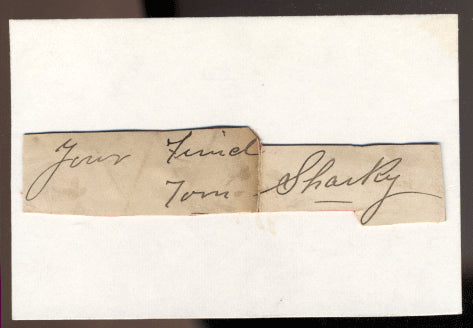 Your Friend
Tom Sharky